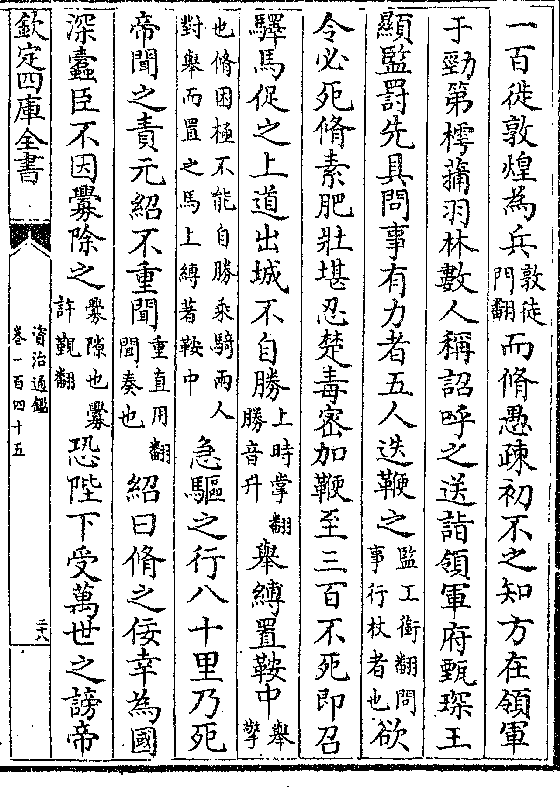 一百徙敦煌為兵敦徒門翻而脩愚疎初不之知方在領軍
于勁第樗蒱羽林數人稱詔呼之送詣領軍府甄琛王
顯監罰先具問事有力者五人迭鞭之監工銜翻問事行杖者也欲
令必死脩素肥壯堪忍楚毒密加鞭至三百不死即召
驛馬促之上道出城不自勝上時掌翻勝音升舉縛置鞍中舉擎
也脩困極不能自勝乘騎兩人對舉而置之馬上縛著鞍中急驅之行八十里乃死
帝聞之責元紹不重聞重直用翻聞奏也紹曰脩之佞幸為國
深蠹臣不因釁除之釁隙也釁許覲翻恐陛下受萬世之謗帝
欽定四庫全書
資治通鑑
卷一百四十五
二十八